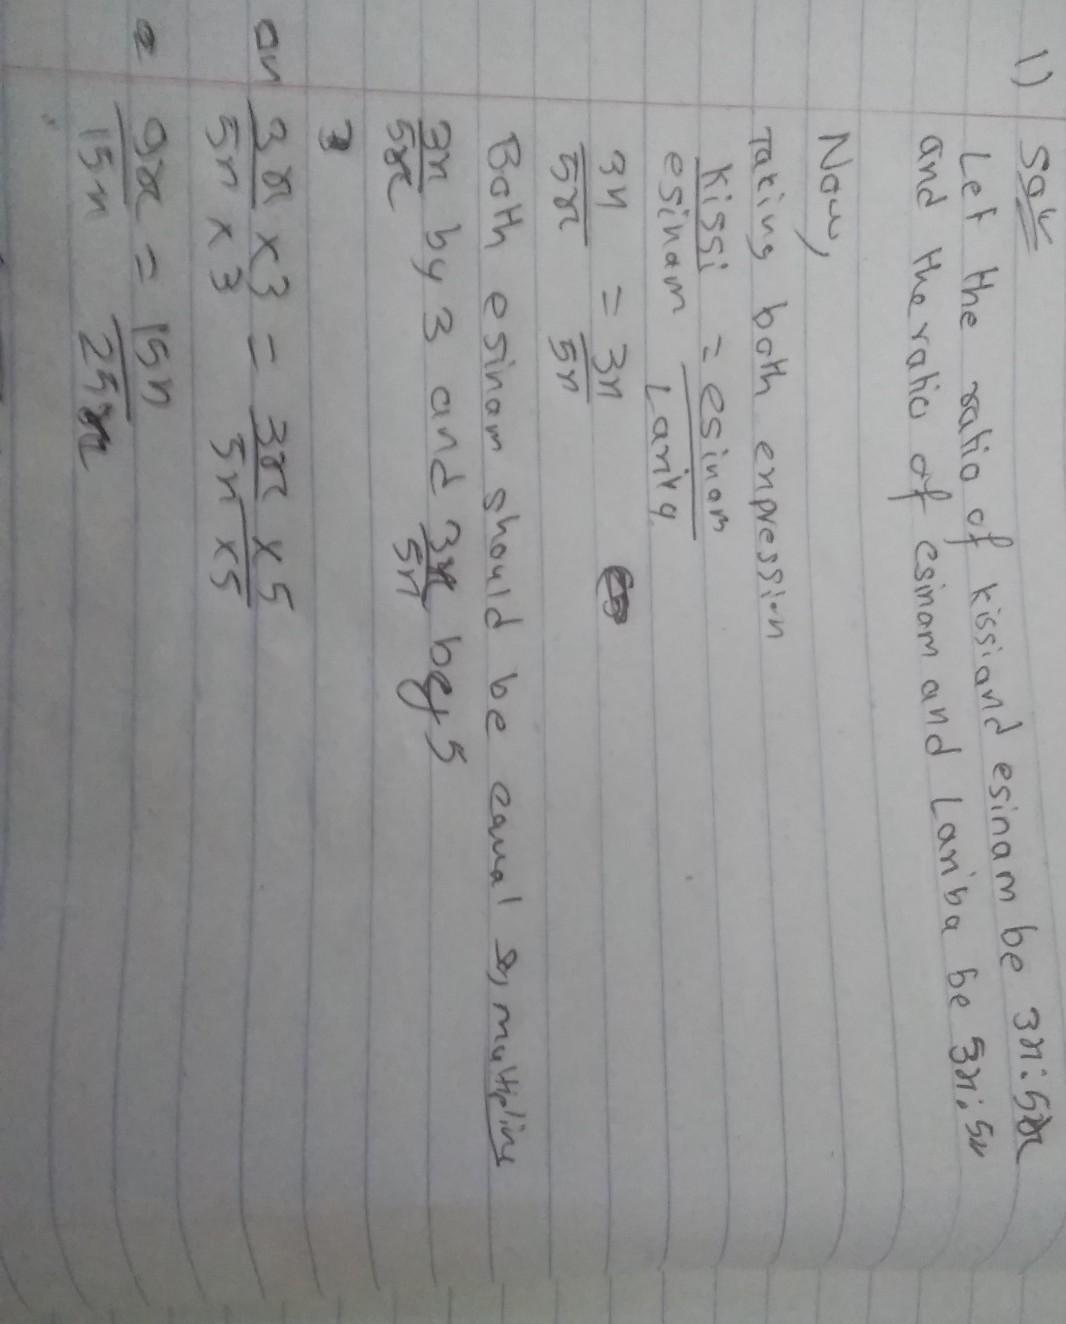 1) Soln
Let the ratio of kissi and esinam be 3x:5x
and the ratio of esinam and Lariba be 3x:5x
Now,
Taking both expression
kissi = esinam
esinam Lariba
3x = 3x
5x 5x
Both esinam should be equal so, multipling
3x by 3 and 3x by 5
5x 5x
or 3x × 3 = 3x × 5
5x × 3 5x × 5
9x = 15x
15x 25x